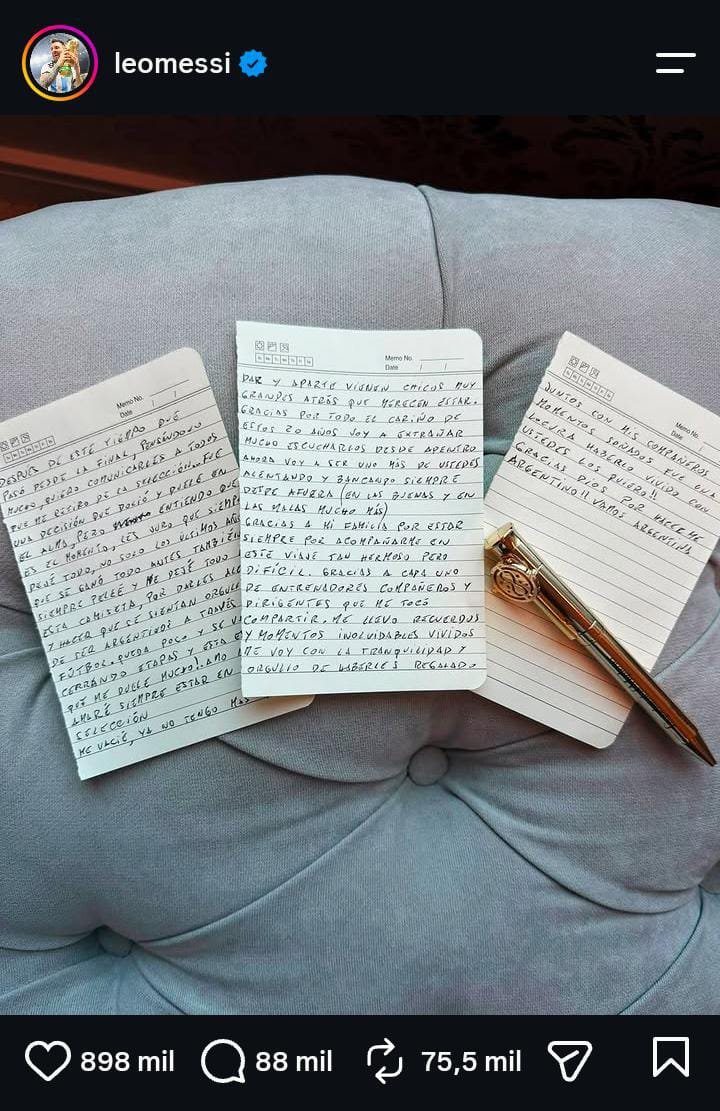 leomessi
Memo No.
Date / /
DESPUES DE ESTE TIEMPO QUE
PASÓ DESDE LA FINAL, PENSÁNDOLO
MUCHO, QUIERO COMUNICARLES A TODOS
QUE ME RETIRO DE LA SELECCIÓN. FUE
UNA DECISIÓN QUE DOLIÓ Y DUELE EN
EL ALMA, PERO ENTIENDO QUE
ES EL MOMENTO, LES JURO QUE SIEMPRE
DEJÉ TODO, NO SOLO LOS ÚLTIMOS AÑOS
QUE SE GANÓ TODO ANTES TAMBIÉN
SIEMPRE PELEÉ Y ME DEJÉ TODO
ESTA CAMISETA, POR DARLES
Y HACER QUE SE SIENTAN
DE SER ARGENTINOS A TRAVÉS
FÚTBOL. QUEDA POCO Y SE
CERRANDO ETAPAS Y ESTA
QUE ME DUELE MUCHO! AMO
AMARÉ SIEMPRE ESTAR EN
SELECCIÓN
ME VACIÉ, YA NO TENGO MAS
Memo No.
Date / /
DAR Y APARTE VIENEN CHICOS MUY
GRANDES ATRÁS QUE MERECEN ESTAR.
GRACIAS POR TODO EL CARIÑO DE
ESTOS 20 AÑOS VOY A EXTRAÑAR
MUCHO ESCUCHARLOS DESDE ADENTRO
AHORA VOY A SER UNO MÁS DE USTEDES
ALENTANDO Y BANCANDO SIEMPRE
DESDE AFUERA (EN LAS BUENAS Y EN
LAS MALAS MUCHO MÁS)
GRACIAS A MI FAMILIA POR ESTAR
SIEMPRE POR ACOMPAÑARME EN
ESTE VIAJE TAN HERMOSO PERO
DIFÍCIL. GRACIAS A CADA UNO
DE ENTRENADORES COMPAÑEROS Y
DIRIGENTES QUE ME TOCÓ
COMPARTIR. ME LLEVO RECUERDOS
Y MOMENTOS INOLVIDABLES VIVIDOS
ME VOY CON LA TRANQUILIDAD Y
ORGULLO DE HABERLES REGALADO
Memo No.
Date
JUNTOS CON MIS COMPAÑEROS
MOMENTOS SOÑADOS FUE UNA
LOCURA HABERLO VIVIDO CON
USTEDES LOS QUIERO!!
GRACIAS DIOS POR HACERME
ARGENTINO!! VAMOS ARGENTINA
898 mil
88 mil
75,5 mil